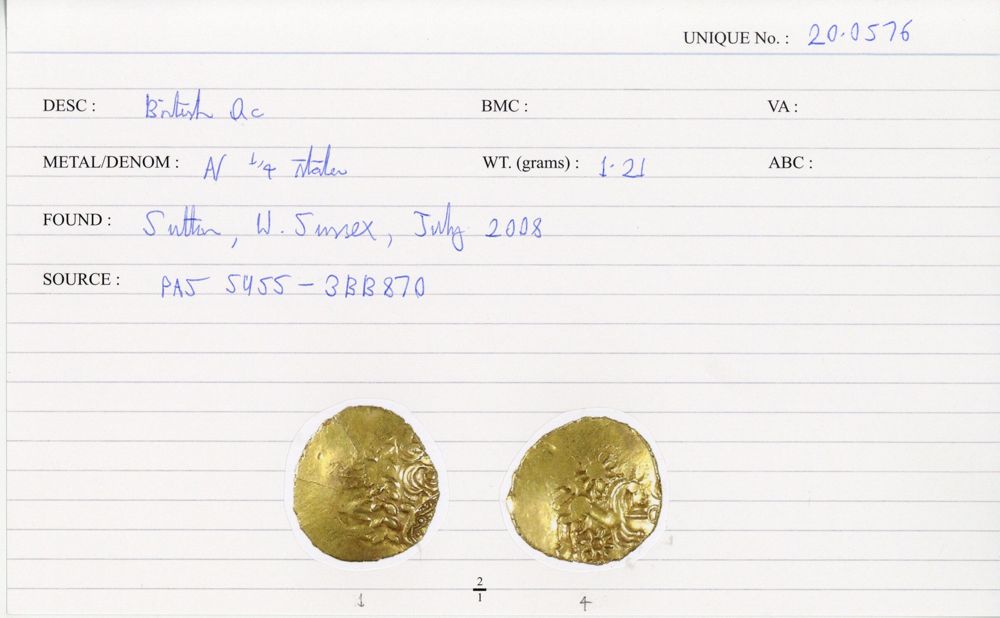 UNIQUE No. : 20.0576
DESC : British Qc BMC : VA :
METAL/DENOM : AV 1/4 Stater WT. (grams) : 1.21 ABC :
FOUND : Sutton, W. Sussex, July 2008
SOURCE : PAS 5455-3BB870
2
1
1 4